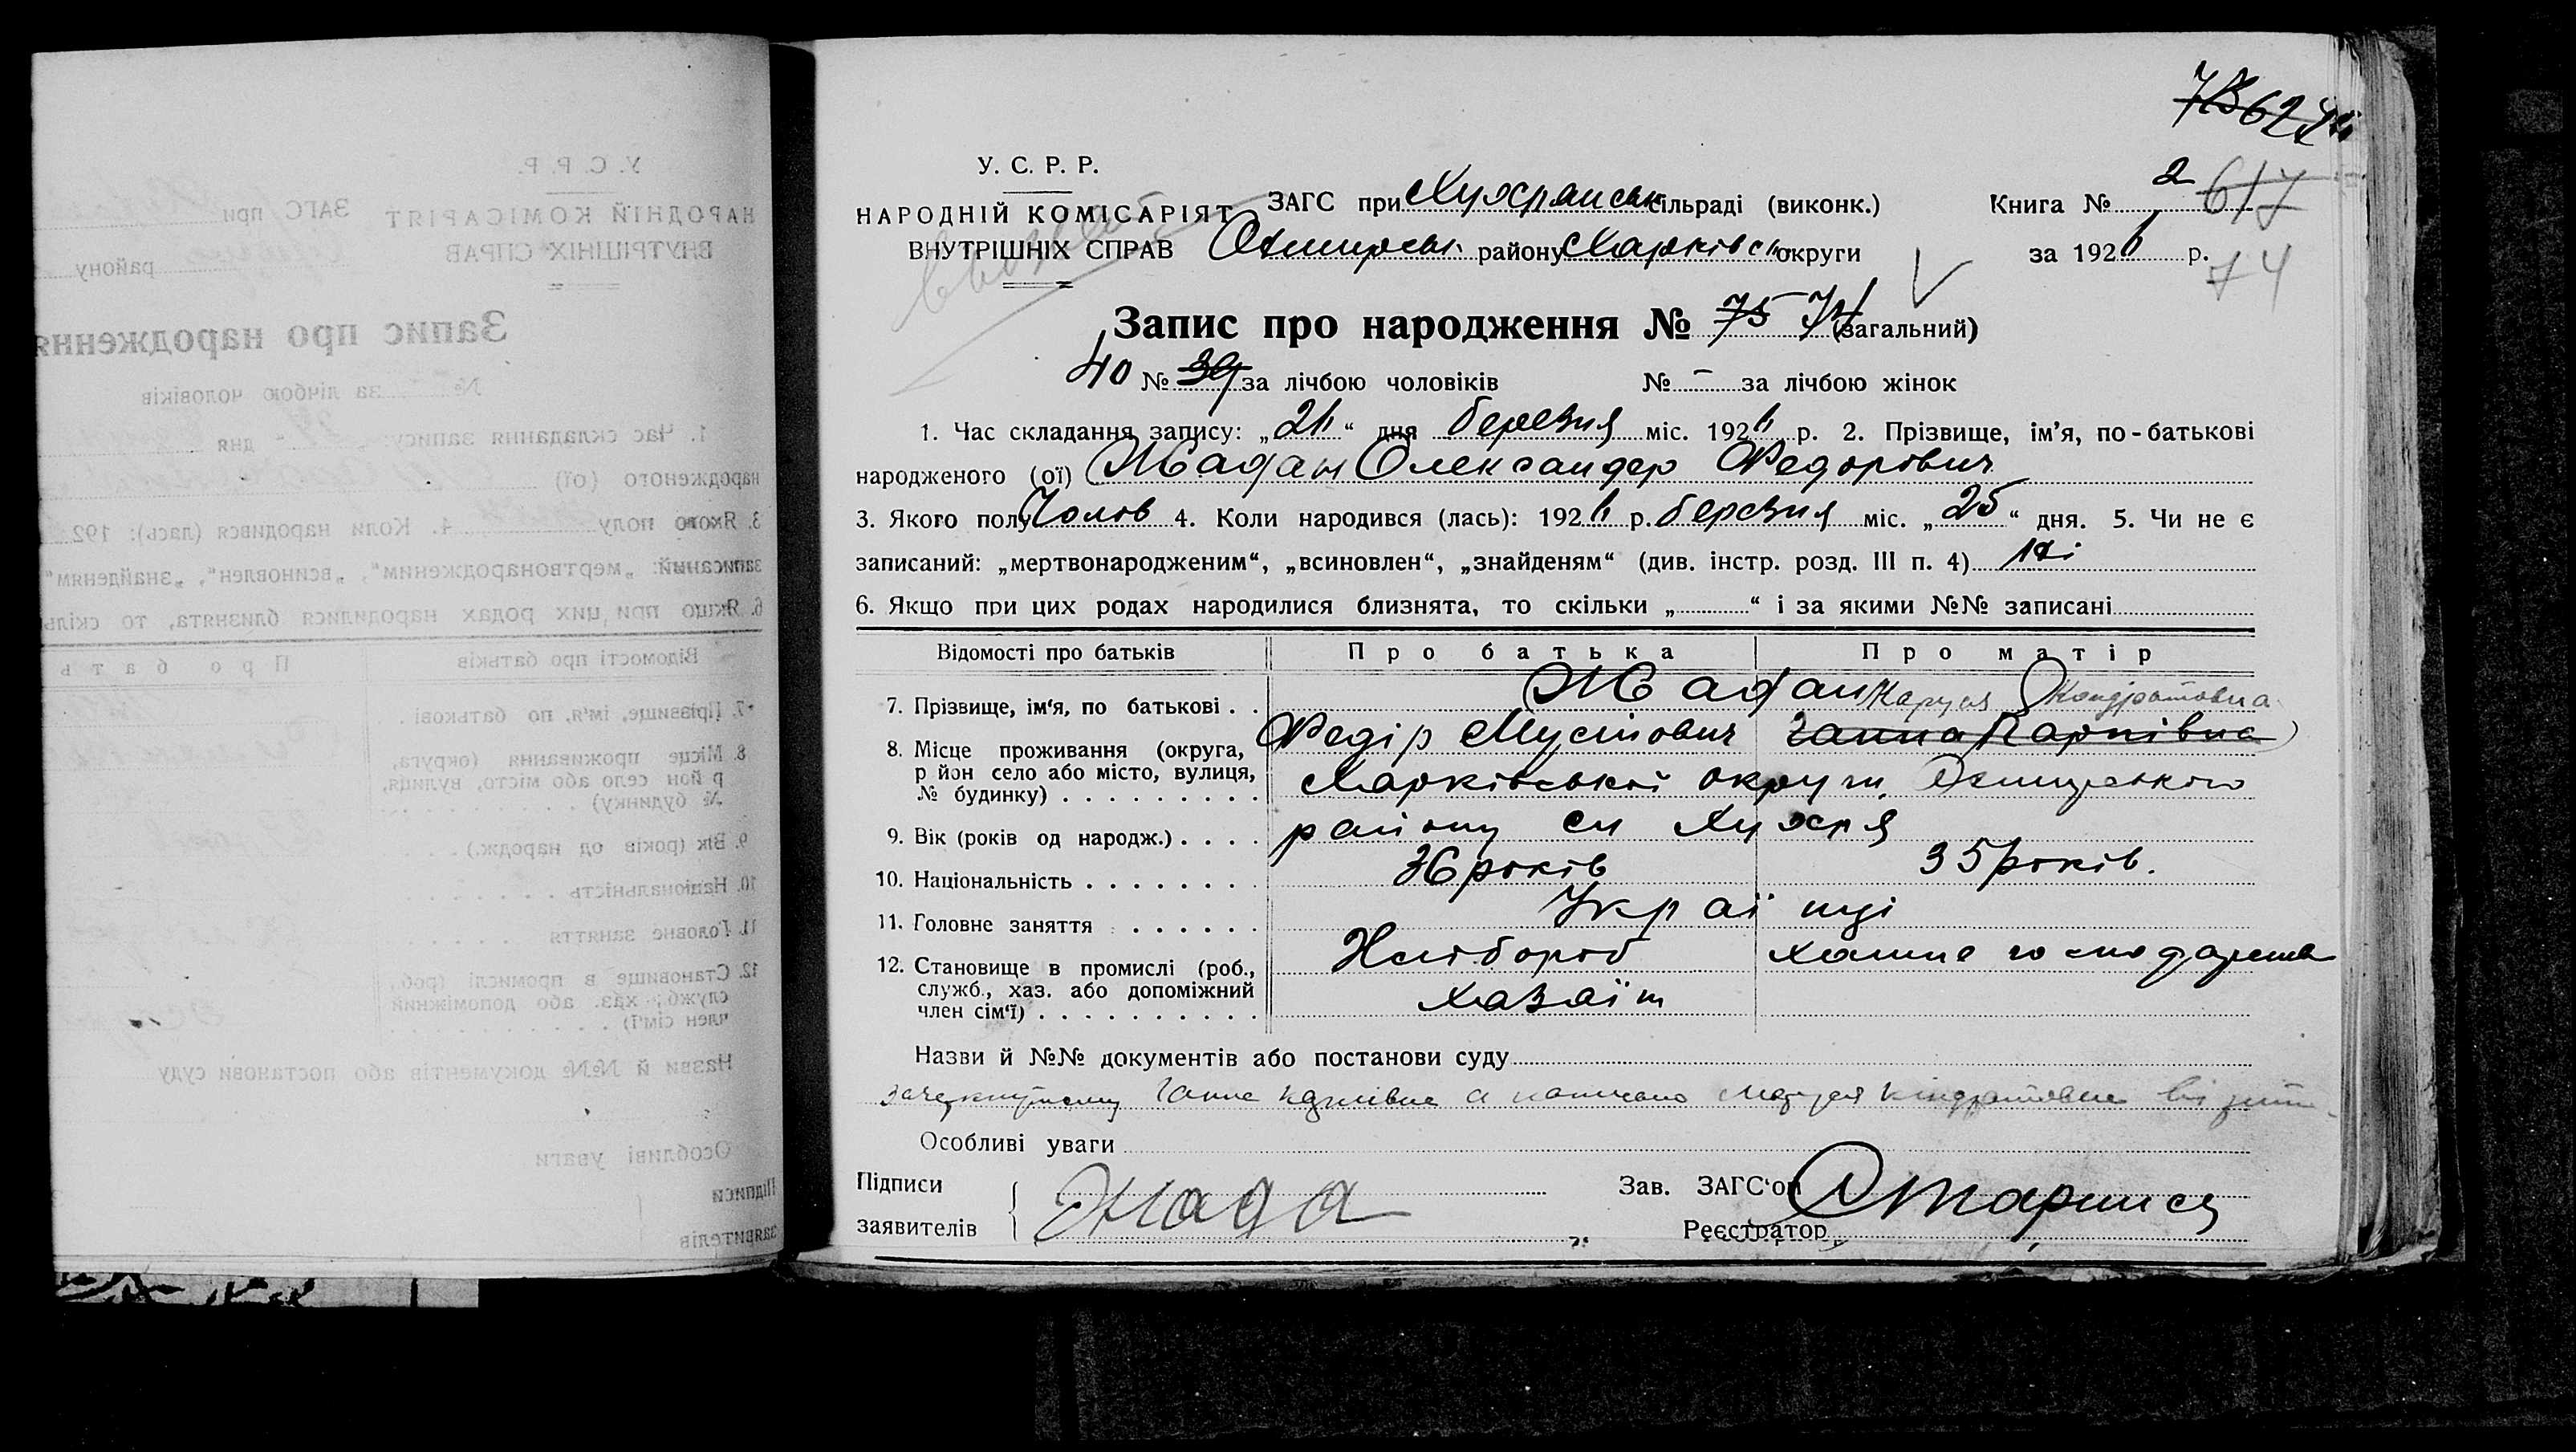 У. С. Р. Р.
НАРОДНІЙ КОМІСАРІЯТ
ВНУТРІШНІХ СПРАВ
ЗАГС при Хухрянськ сільраді (виконк.)
Охтирськ. району Харківськ округи
Книга № 2
617
за 1926 р.
74
Запис про народження № 75 74 (загальний)
40 № 39 за лічбою чоловіків № - за лічбою жінок
1. Час складання запису: „26“ дня березня міс. 1926 р. 2. Прізвище, ім’я, по-батькові
народженого (ої) Жадан Олександер Федорович
3. Якого полу Чолов 4. Коли народився (лась): 1926 р. березня міс. „25“ дня. 5. Чи не є
записаний: „мертвонародженим“, „всиновлен“, „знайденям“ (див. інстр. розд. III п. 4) Ні
6. Якщо при цих родах народилися близнята, то скільки „ “ і за якими №№ записані
Відомості про батьків Про батька Про матір
7. Прізвище, ім‘я, по батькові . . Жадан Маруся Кондратовна
Федір Мусійович Ганна Карпівна
8. Місце проживання (округа,
р йон село або місто, вулиця,
№ будинку)
Харківської округи, Охтирського
району сл Хухря
9. Вік (років од народж.) 36 років 35 років.
10. Національність Українці
11. Головне заняття Хлібороб хатне господарство
12. Становище в промислі (роб.,
служб., хаз. або допоміжний
член сім‘ї)
Хазяїн
Назви й №№ документів або постанови суду
Ганна Карпівна а написано Маруся Кіндратовна
Особливі уваги
Підписи
заявителів
Жада
Зав. ЗАГС‘ом
Реєстратор